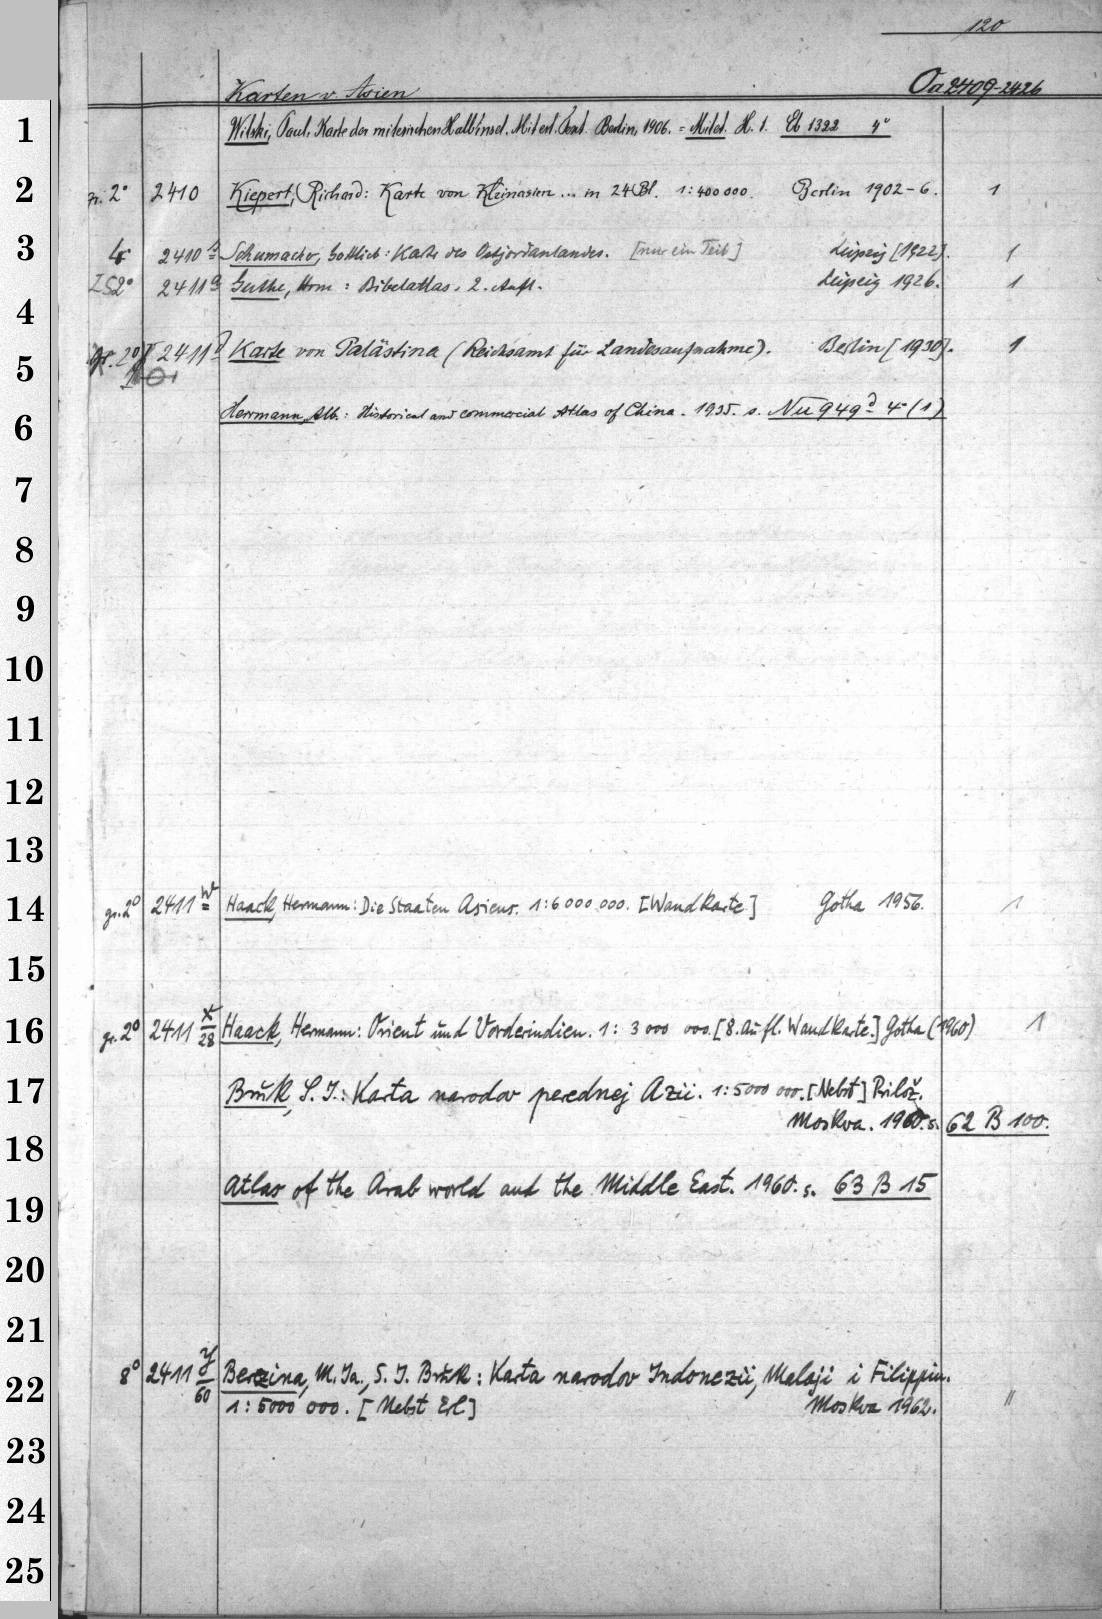 120
Karten v. Asien Oa 2409-2426
1 Wilski, Paul, Karte der milesischen Halbinsel. Mit erl. Text. Berlin, 1906. = Milet. H. 1. Eb 1322 4°
2 gr. 2° 2410 Kiepert, Richard: Karte von Kleinasien ... in 24 Bl. 1:400 000. Berlin 1902-6. 1
3 4° 2410 a Schumacher, Gottlieb: Karte des Ostjordanlandes. [nur ein Teil] Leipzig [1922]. 1
2° 2411 a Guthe, Herm: Bibelatlas. 2. Aufl. Leipzig 1926. 1
4
5 gr. 2° 2411 Karte von Palästina (Reichsamt für Landesaufnahme). Berlin [1930]. 1
6 Herrmann, Alb.: Historical and commercial Atlas of China. 1935. s. Nu 949 d 4° (1)
7
8
9
10
11
12
13
14 gr. 2° 2411 w Haack, Hermann: Die Staaten Asiens. 1:6 000 000. [Wandkarte] Gotha 1956. 1
15
16 gr. 2° 2411 x/28 Haack, Hermann: Orient und Vorderindien. 1: 3 000 000. [8. Aufl. Wandkarte.] Gotha (1960) 1
17 Bruk, S. I.: Karta narodov perednej Azii. 1:5000 000. [Nebst] Prilož.
Moskva. 1960. s. 62 B 100.
18
19 Atlas of the Arab world and the Middle East. 1960. s. 63 B 15
20
21
22 8° 2411 y/60 Berzina, M. Ja., S. I. Bruk: Karta narodov Indonezii, Malaji i Filippin.
1:5000 000. [Nebst Erl.] Moskva 1962. "
23
24
25